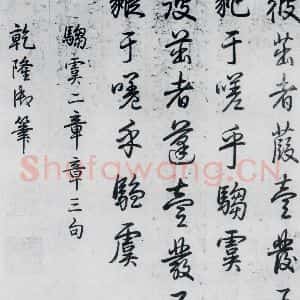 彼茁者葭壹發五
豝于嗟乎騶虞
彼茁者蓬壹發五
豵于嗟乎騶虞
騶虞二章章三句
乾隆御筆
Shufawang.CN